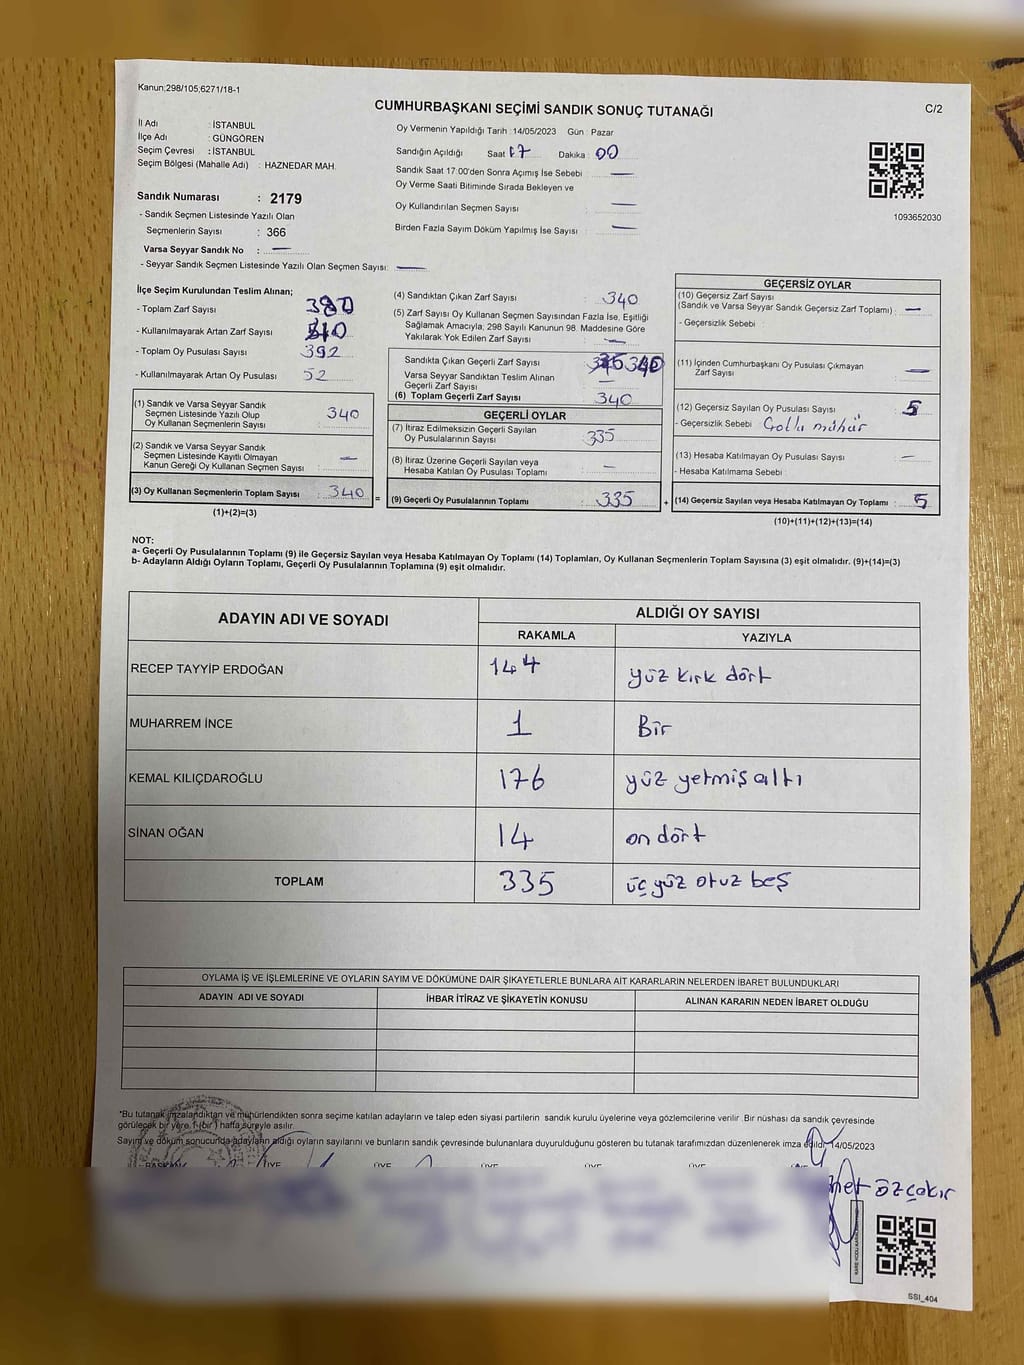 Kanun;298/105,6271/18-1
CUMHURBAŞKANI SEÇİMİ SANDIK SONUÇ TUTANAĞI
C/2
İl Adı : İSTANBUL
İlçe Adı : GÜNGÖREN
Seçim Çevresi : İSTANBUL
Seçim Bölgesi (Mahalle Adı) : HAZNEDAR MAH.
Sandık Numarası : 2179
- Sandık Seçmen Listesinde Yazılı Olan
Seçmenlerin Sayısı : 366
Varsa Seyyar Sandık No : —
- Seyyar Sandık Seçmen Listesinde Yazılı Olan Seçmen Sayısı: —
Oy Vermenin Yapıldığı Tarih : 14/05/2023 Gün : Pazar
Sandığın Açıldığı Saat 17 Dakika : 00
Sandık Saat 17:00'den Sonra Açımış İse Sebebi —
Oy Verme Saati Bitiminde Sırada Bekleyen ve
Oy Kullandırılan Seçmen Sayısı —
Birden Fazla Sayım Döküm Yapılmış İse Sayısı —
1093652030
İlçe Seçim Kurulundan Teslim Alınan;
- Toplam Zarf Sayısı
- Kullanılmayarak Artan Zarf Sayısı
- Toplam Oy Pusulası Sayısı 392
- Kullanılmayarak Artan Oy Pusulası 52
(1) Sandık ve Varsa Seyyar Sandık
Seçmen Listesinde Yazılı Olup
Oy Kullanan Seçmenlerin Sayısı : 340
(2) Sandık ve Varsa Seyyar Sandık
Seçmen Listesinde Kayıtlı Olmayan
Kanun Gereği Oy Kullanan Seçmen Sayısı : —
(3) Oy Kullanan Seçmenlerin Toplam Sayısı : 340 =
(1)+(2)=(3)
(4) Sandıktan Çıkan Zarf Sayısı : 340
(5) Zarf Sayısı Oy Kullanan Seçmen Sayısından Fazla İse, Eşitliği
Sağlamak Amacıyla; 298 Sayılı Kanunun 98. Maddesine Göre
Yakılarak Yok Edilen Zarf Sayısı : —
Sandıkta Çıkan Geçerli Zarf Sayısı 340
Varsa Seyyar Sandıktan Teslim Alınan
Geçerli Zarf Sayısı —
(6) Toplam Geçerli Zarf Sayısı 340
GEÇERLİ OYLAR
(7) İtiraz Edilmeksizin Geçerli Sayılan
Oy Pusulalarının Sayısı : 335
(8) İtiraz Üzerine Geçerli Sayılan veya
Hesaba Katılan Oy Pusulası Toplamı : —
(9) Geçerli Oy Pusulalarının Toplamı : 335 +
GEÇERSİZ OYLAR
(10) Geçersiz Zarf Sayısı
(Sandık ve Varsa Seyyar Sandık Geçersiz Zarf Toplamı) : —
- Geçersizlik Sebebi
(11) İçinden Cumhurbaşkanı Oy Pusulası Çıkmayan
Zarf Sayısı : —
(12) Geçersiz Sayılan Oy Pusulası Sayısı : 5
- Geçersizlik Sebebi : Çoklu mühür
(13) Hesaba Katılmayan Oy Pusulası Sayısı : —
- Hesaba Katılmama Sebebi :
(14) Geçersiz Sayılan veya Hesaba Katılmayan Oy Toplamı : 5
(10)+(11)+(12)+(13)=(14)
NOT:
a- Geçerli Oy Pusulalarının Toplamı (9) ile Geçersiz Sayılan veya Hesaba Katılmayan Oy Toplamı (14) Toplamları, Oy Kullanan Seçmenlerin Toplam Sayısına (3) eşit olmalıdır. (9)+(14)=(3)
b- Adayların Aldığı Oyların Toplamı, Geçerli Oy Pusulalarının Toplamına (9) eşit olmalıdır.
ADAYIN ADI VE SOYADI ALDIĞI OY SAYISI
RAKAMLA YAZIYLA
RECEP TAYYİP ERDOĞAN 144 yüz kırk dört
MUHARREM İNCE 1 Bir
KEMAL KILIÇDAROĞLU 176 yüz yetmiş altı
SİNAN OĞAN 14 on dört
TOPLAM 335 üç yüz otuz beş
OYLAMA İŞ VE İŞLEMLERİNE VE OYLARIN SAYIM VE DÖKÜMÜNE DAİR ŞİKAYETLERLE BUNLARA AİT KARARLARIN NELERDEN İBARET BULUNDUKLARI
ADAYIN ADI VE SOYADI İHBAR İTİRAZ VE ŞİKAYETİN KONUSU ALINAN KARARIN NEDEN İBARET OLDUĞU
*Bu tutanak imzalandıktan ve mühürlendikten sonra seçime katılan adayların ve talep eden siyasi partilerin sandık kurulu üyelerine veya gözlemcilerine verilir. Bir nüshası da sandık çevresinde
görülecek bir yere, 1 (bir) hafta süreyle asılır.
Sayım ve döküm sonucunda adayların aldığı oyların sayılarını ve bunların sandık çevresinde bulunanlara duyurulduğunu gösteren bu tutanak tarafımızdan düzenlenerek imza edildi. 14/05/2023
BAŞKAN ÜYE ÜYE ÜYE ÜYE ÜYE
özçakır
SSI_404